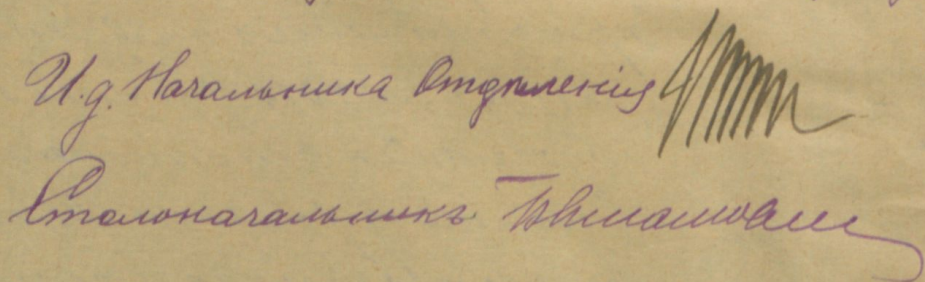 И.д. Начальника Отдѣленія
Столоначальникъ